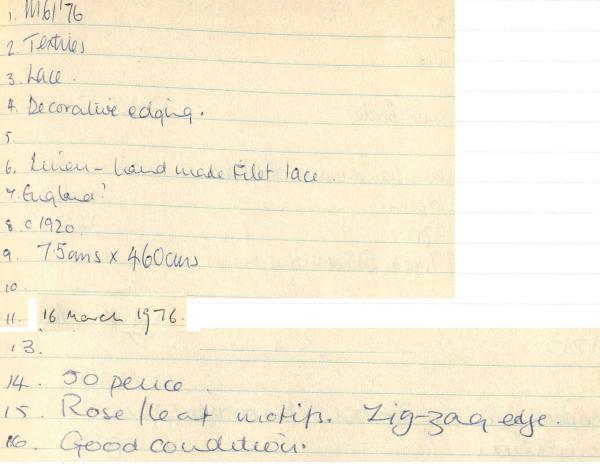 1. M61'76
2. Textiles
3. Lace.
4. Decorative edging.
5.
6. Linen - hand made Filet lace.
7. England?
8. c 1920.
9. 75cms x 460cms
10.
11. 16 March 1976.
13.
14. 50 pence.
15. Rose/leaf motifs. Zig-zag edge.
16. Good condition.